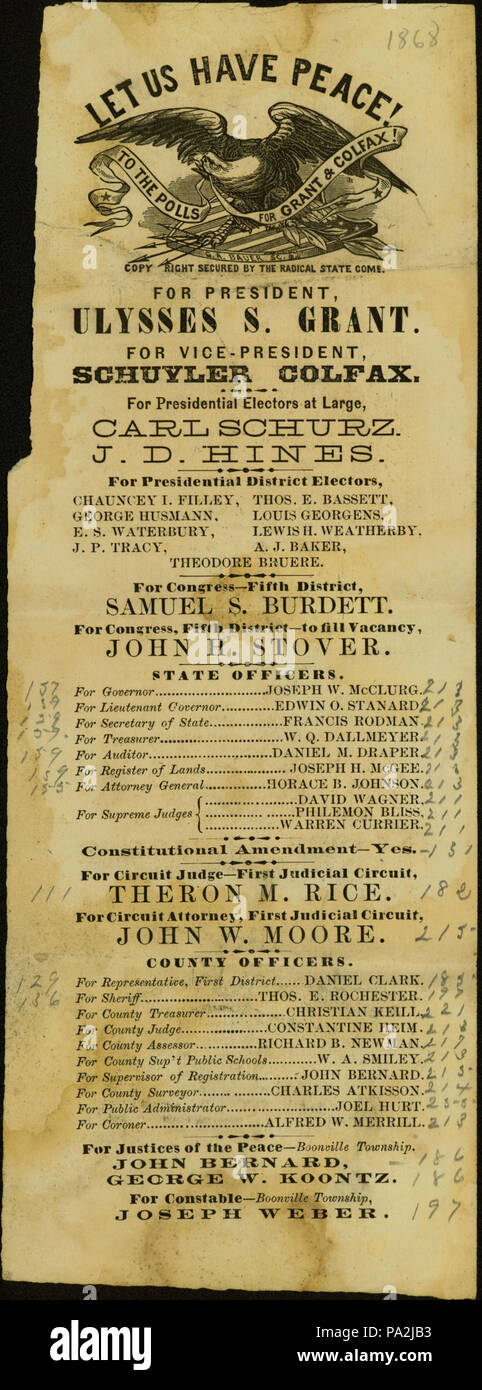 1868
LET US HAVE PEACE!
TO THE POLLS
FOR GRANT & COLFAX!
COPY RIGHT SECURED BY THE RADICAL STATE COME.
FOR PRESIDENT,
ULYSSES S. GRANT.
FOR VICE-PRESIDENT,
SCHUYLER COLFAX.
For Presidential Electors at Large,
CARL SCHURZ.
J. D. HINES.
For Presidential District Electors,
CHAUNCEY I. FILLEY, THOS. E. BASSETT,
GEORGE HUSMANN, LOUIS GEORGENS,
E. S. WATERBURY, LEWIS H. WEATHERBY.
J. P. TRACY, A. J. BAKER,
THEODORE BRUERE.
For Congress—Fifth District,
SAMUEL S. BURDETT.
For Congress, Fifth District—to fill Vacancy,
JOHN H. STOVER.
STATE OFFICERS.
157 For Governor........JOSEPH W. McCLURG. 213
159 For Lieutenant Governor........EDWIN O. STANARD 213
For Secretary of State........FRANCIS RODMAN. 213
159 For Treasurer........W. Q. DALLMEYER. 213
159 For Auditor........DANIEL M. DRAPER. 213
159 For Register of Lands........JOSEPH H. McGEE. 213
155 For Attorney General........HORACE B. JOHNSON. 213
DAVID WAGNER. 211
For Supreme Judges PHILEMON BLISS. 211
WARREN CURRIER. 211
Constitutional Amendment—Yes. -131
For Circuit Judge—First Judicial Circuit,
111 THERON M. RICE. 182
For Circuit Attorney, First Judicial Circuit,
JOHN W. MOORE. 215
COUNTY OFFICERS.
129 For Representative, First District...... DANIEL CLARK. 185
136 For Sheriff........THOS. E. ROCHESTER. 197
For County Treasurer........CHRISTIAN KEILL. 221
For County Judge........CONSTANTINE HEIM. 213
For County Assessor........RICHARD B. NEWMAN. 217
For County Sup't Public Schools........W. A. SMILEY. 213
For Supervisor of Registration........JOHN BERNARD. 215
For County Surveyor........CHARLES ATKISSON. 214
For Public Administrator........JOEL HURT.
For Coroner........ALFRED W. MERRILL. 213
For Justices of the Peace—Boonville Township.
JOHN BERNARD, - 186
GEORGE W. KOONTZ. 186
For Constable—Boonville Township,
JOSEPH WEBER. 197
alamy
Image ID: PA2JB3
www.alamy.com